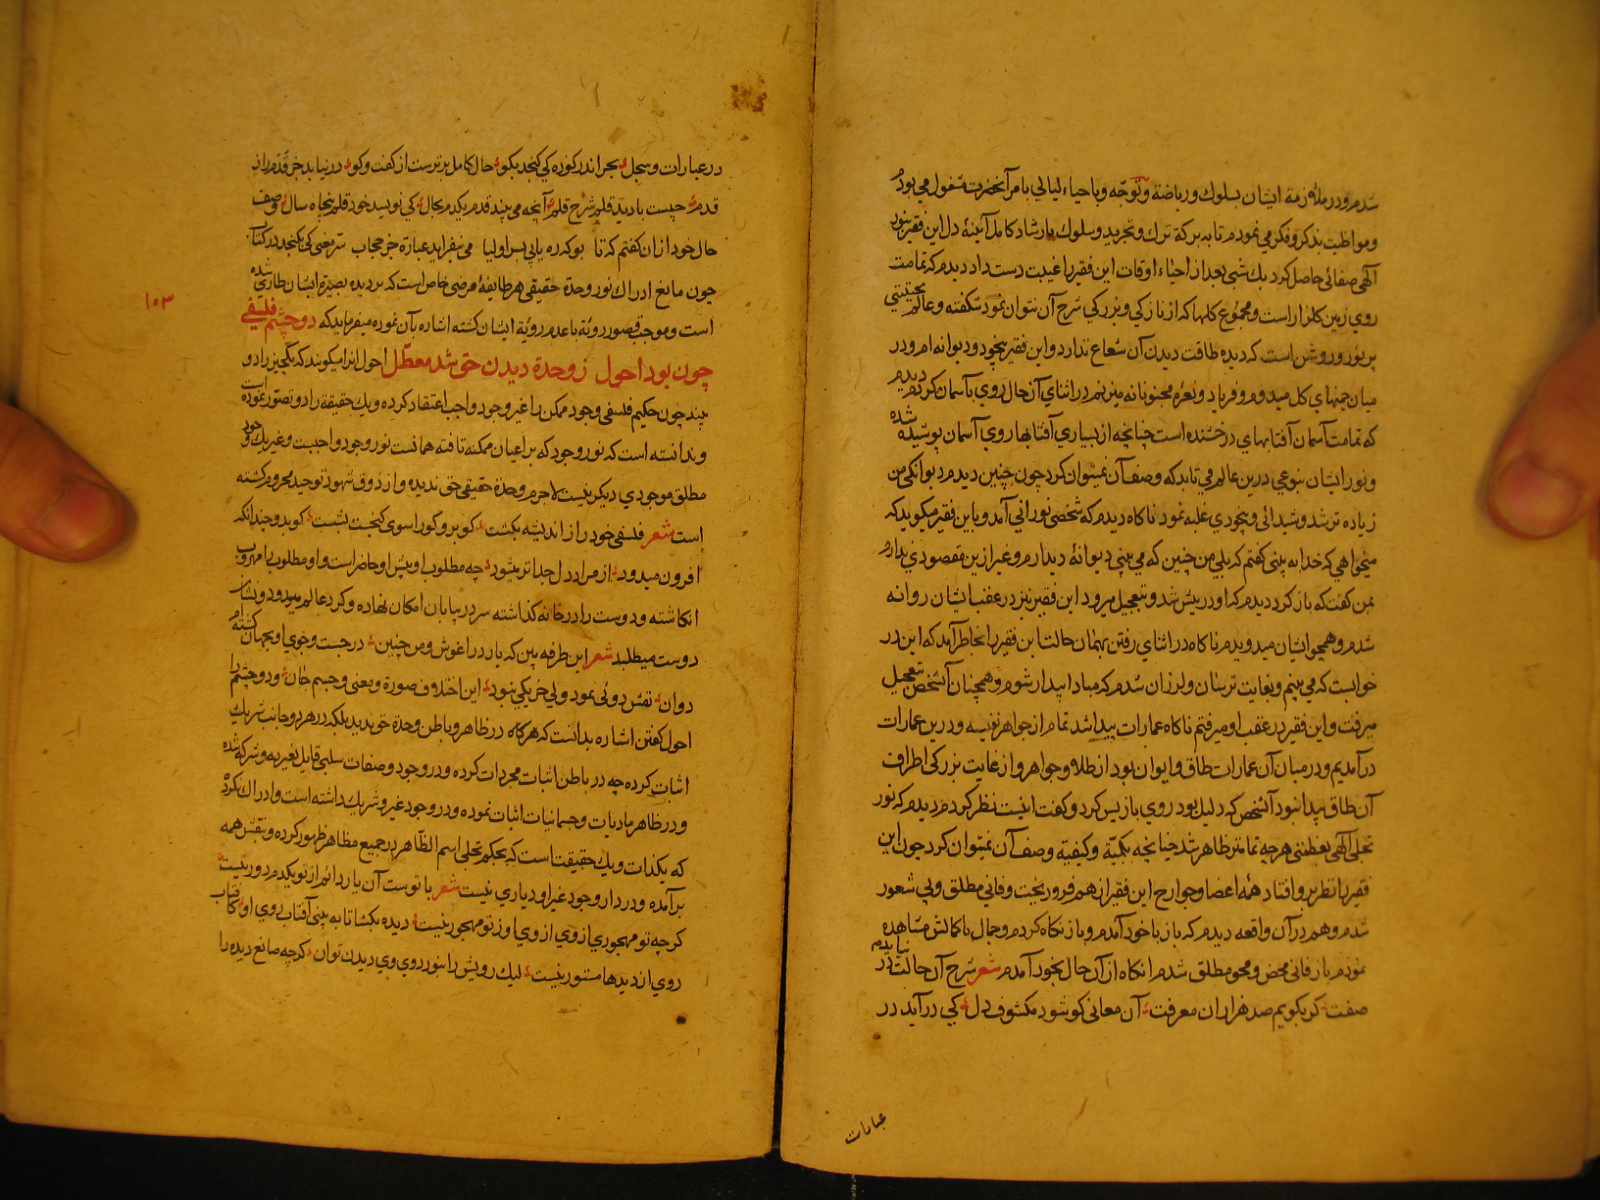 شدم و در ملازمة ايشان بسلوك و رياضة و توجه و باحياء ليالي بامر آنحضرت مشغول مي بودم
و مواظبت بذكر و فكر مي نمودم تا به بركة ترك و تجريد و سلوك بارشاد كامل آئينۀ دل اين فقير بنور
آلهي صفائي حاصل كرد يك شبي بعد از احياء اوقات اين فقير را غيبت دست داد ديدم كه تمامت
روي زمين گلزار است و مجموع گلها كه از نازكي و بزرگي شرح آن نتوان نمود شكفته و عالم بحيثيتي
پر نور و روشن است كه ديده طاقت ديدن آن شعاع ندارد و اين فقير بيخود و ديوانه ام و در
ميان چمنهاي گل ميدوم و فرياد و نعرۀ مجنونانه ميزنم در اثناي آن حال روي بآسمان كردم ديدم
كه تمامت آسمان آفتابهاي درخشنده است چنانچه از بسياري آفتابها روي آسمان پوشيده شده
و نور ايشان بنوعي درين عالم مي تابد كه وصف آن نميتوان كرد چون چنين ديدم ديوانگي من
زياده تر شد و شيدائي و بيخودي غلبه نمود ناكاه ديدم كه شخصي نوراني آمد و باين فقير ميگويد كه
ميخواهي كه خدا به بيني گفتم كه بلي من چنين كه مي بيني ديوانۀ ديدارم و غير ازين مقصودي ندارم
بمن گفت كه باز گرد ديدم كه او در پيش شد و بتعجيل ميرود اين فقير نيز در عقب ايشان روانه
شدم و همچو ايشان ميدويدم ناكاه در اثناي رفتن بهمان حالت اين فقير را بخاطر آمد كه اين در
خوابست كه مي بينم و بغايت ترسان و لرزان شدم كه مبادا بيدار شوم و همچنان آنشخص بتعجيل
ميرفت و اين فقير در عقب او ميرفتم ناكاه عمارات پيدا شد تمام از جواهر نفيسه و درين عمارات
در آمديم و در ميان آن عمارات طاق و ايوان بود از طلا و جواهر و از غايت بزرگي اطراف
آن طاق پيدا نبود آنشخص كه دليل بود روي باز پس كرد و گفت اينست نظر كردم ديدم كه نور
تجلي آلهي بعظمتي هر چه تمامتر ظاهر شد چنانچه بكميّة و كيفيّة وصف آن نميتوان كرد چون اين
فقير را نظر برو افتاد همه اعضا و جوارح اين فقير از هم فرو ريخت و فاني مطلق و بي شعور
شدم و هم در آن واقعه ديدم كه باز با خود آمدم و باز نگاه كردم و جمال با كمالش مشاهده
نمودم باز فاني محض و محو مطلق شدم انگاه از آن حال بخود آمدم شعر شرح آن حالت نيايدم در
صفت گر بگويم صد هزاران معرفت آن معاني كو شود مكشوف دل كي در آيد در
عبارات
در عبارات و سجل بحر اندر كوزه كي گنجد بگو حال كامل برترست از گفت و گو در نيابد جز قدم راز
قدم چيست با دريا قلم شرح قلم آنچه مي بيند قدم يكدم بحال كي نويسد خود قلم پنجاه سال وصف
حال خود از ان گفتم كه تا بو كه ره يابي پس اوليا مي نيفزايد عبارة جز حجاب شرّ معني كي بگنجد در كتاب
چون مانع ادراك نور وحدة حقيقي هر طايفۀ مرضي خاص است كه بر ديده بصيرة ايشان طاري شده
است و موجب قصور رؤية يا عدم رؤية ايشان گشته اشاره بآن نموده ميفرمايد كه دو چشم فلسفي
چون بود احول ز وحدة ديدن حق شد معطّل احول انرا ميگويند كه يكچيز را دو
بيند چون حكيم فلسفي وجود ممكن را غير وجود واجب اعتقاد كرده و يك حقيقة را دو تصوّر نموده است
و ندانسته است كه نور وجود كه بر اعيان ممكنه تافته همانست نور وجود واجبست و غير يك وجود
مطلق موجودي ديگر نيست لاجرم وحدة حقيقي حق نديده و از ذوق شهود توحيد محروم گشته
است شعر فلسفي خود را از انديشه بكشت گو برو گو را سوي گنجست پشت گو بدو چندانكه
افزون ميدود از مراد دل جداتر ميشود چه مطلوب او پيش او حاضر است و او مطلوب را مهروب
انگاشته و دوست را در خانه گذاشته سر در بيابان امكان نهاده و گرد عالم ميدود و نشان
دوست ميطلبد شعر اين طرفه بين كه يار در اغوش و من چنين در جست و جوي او بجهان گشته ام
دوان نقش دوئي نمود ولي جز يكي نبود اين اختلاف صورة و معني و جسم جان و دو چشم را
احول گفتن اشاره بدانست كه هرگاه در ظاهر و باطن وحدة حق نديد بلكه در هر دو جانب شريك
اثبات كرده چه در باطن اثبات مجردات كرده و در وجود و صفات سلبي قايل بغيريه و شركه شده
و در ظاهر ماديات و جسمانيات اثبات نموده و در وجود غير و شريك داشته است و ادراك نكرده
كه يكذات و يك حقيقت است كه بحكم تجلي اسم الظّاهر در جميع مظاهر ظهور كرده و بنقش همه
برآمده و در دار وجود غير او دياري نيست شعر با توست آن يار دائم از تو يكدم دور نيست
گرچه تو مهجوري از وي از وي او ز تو مهجور نيست ديده بگشا تا به بيني آفتاب روي او كافتاب
روي از ديدها مستور نيست ليك رويش را بنور روي وي ديدن توان گرچه مانع ديده را
١٠٣